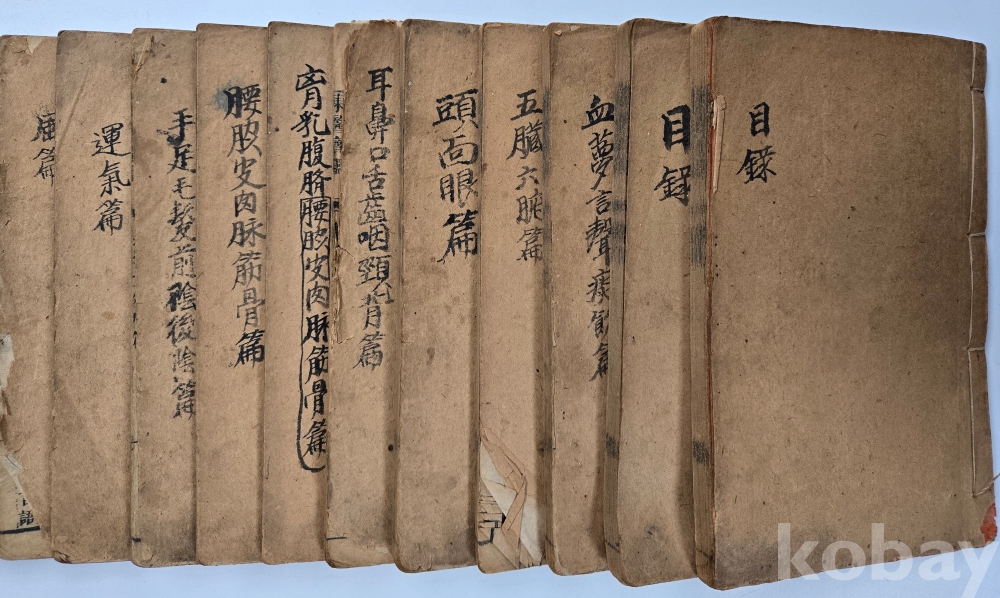 目錄
目錄
血夢言聲痰飮篇
五臟六腑篇
頭面眼篇
耳鼻口舌齒咽頸背篇
胷乳腹臍腰脥皮肉脉筋骨篇
腰脥皮肉脉筋骨篇
手足毛髮前陰後陰篇
運氣篇
篇
kobay